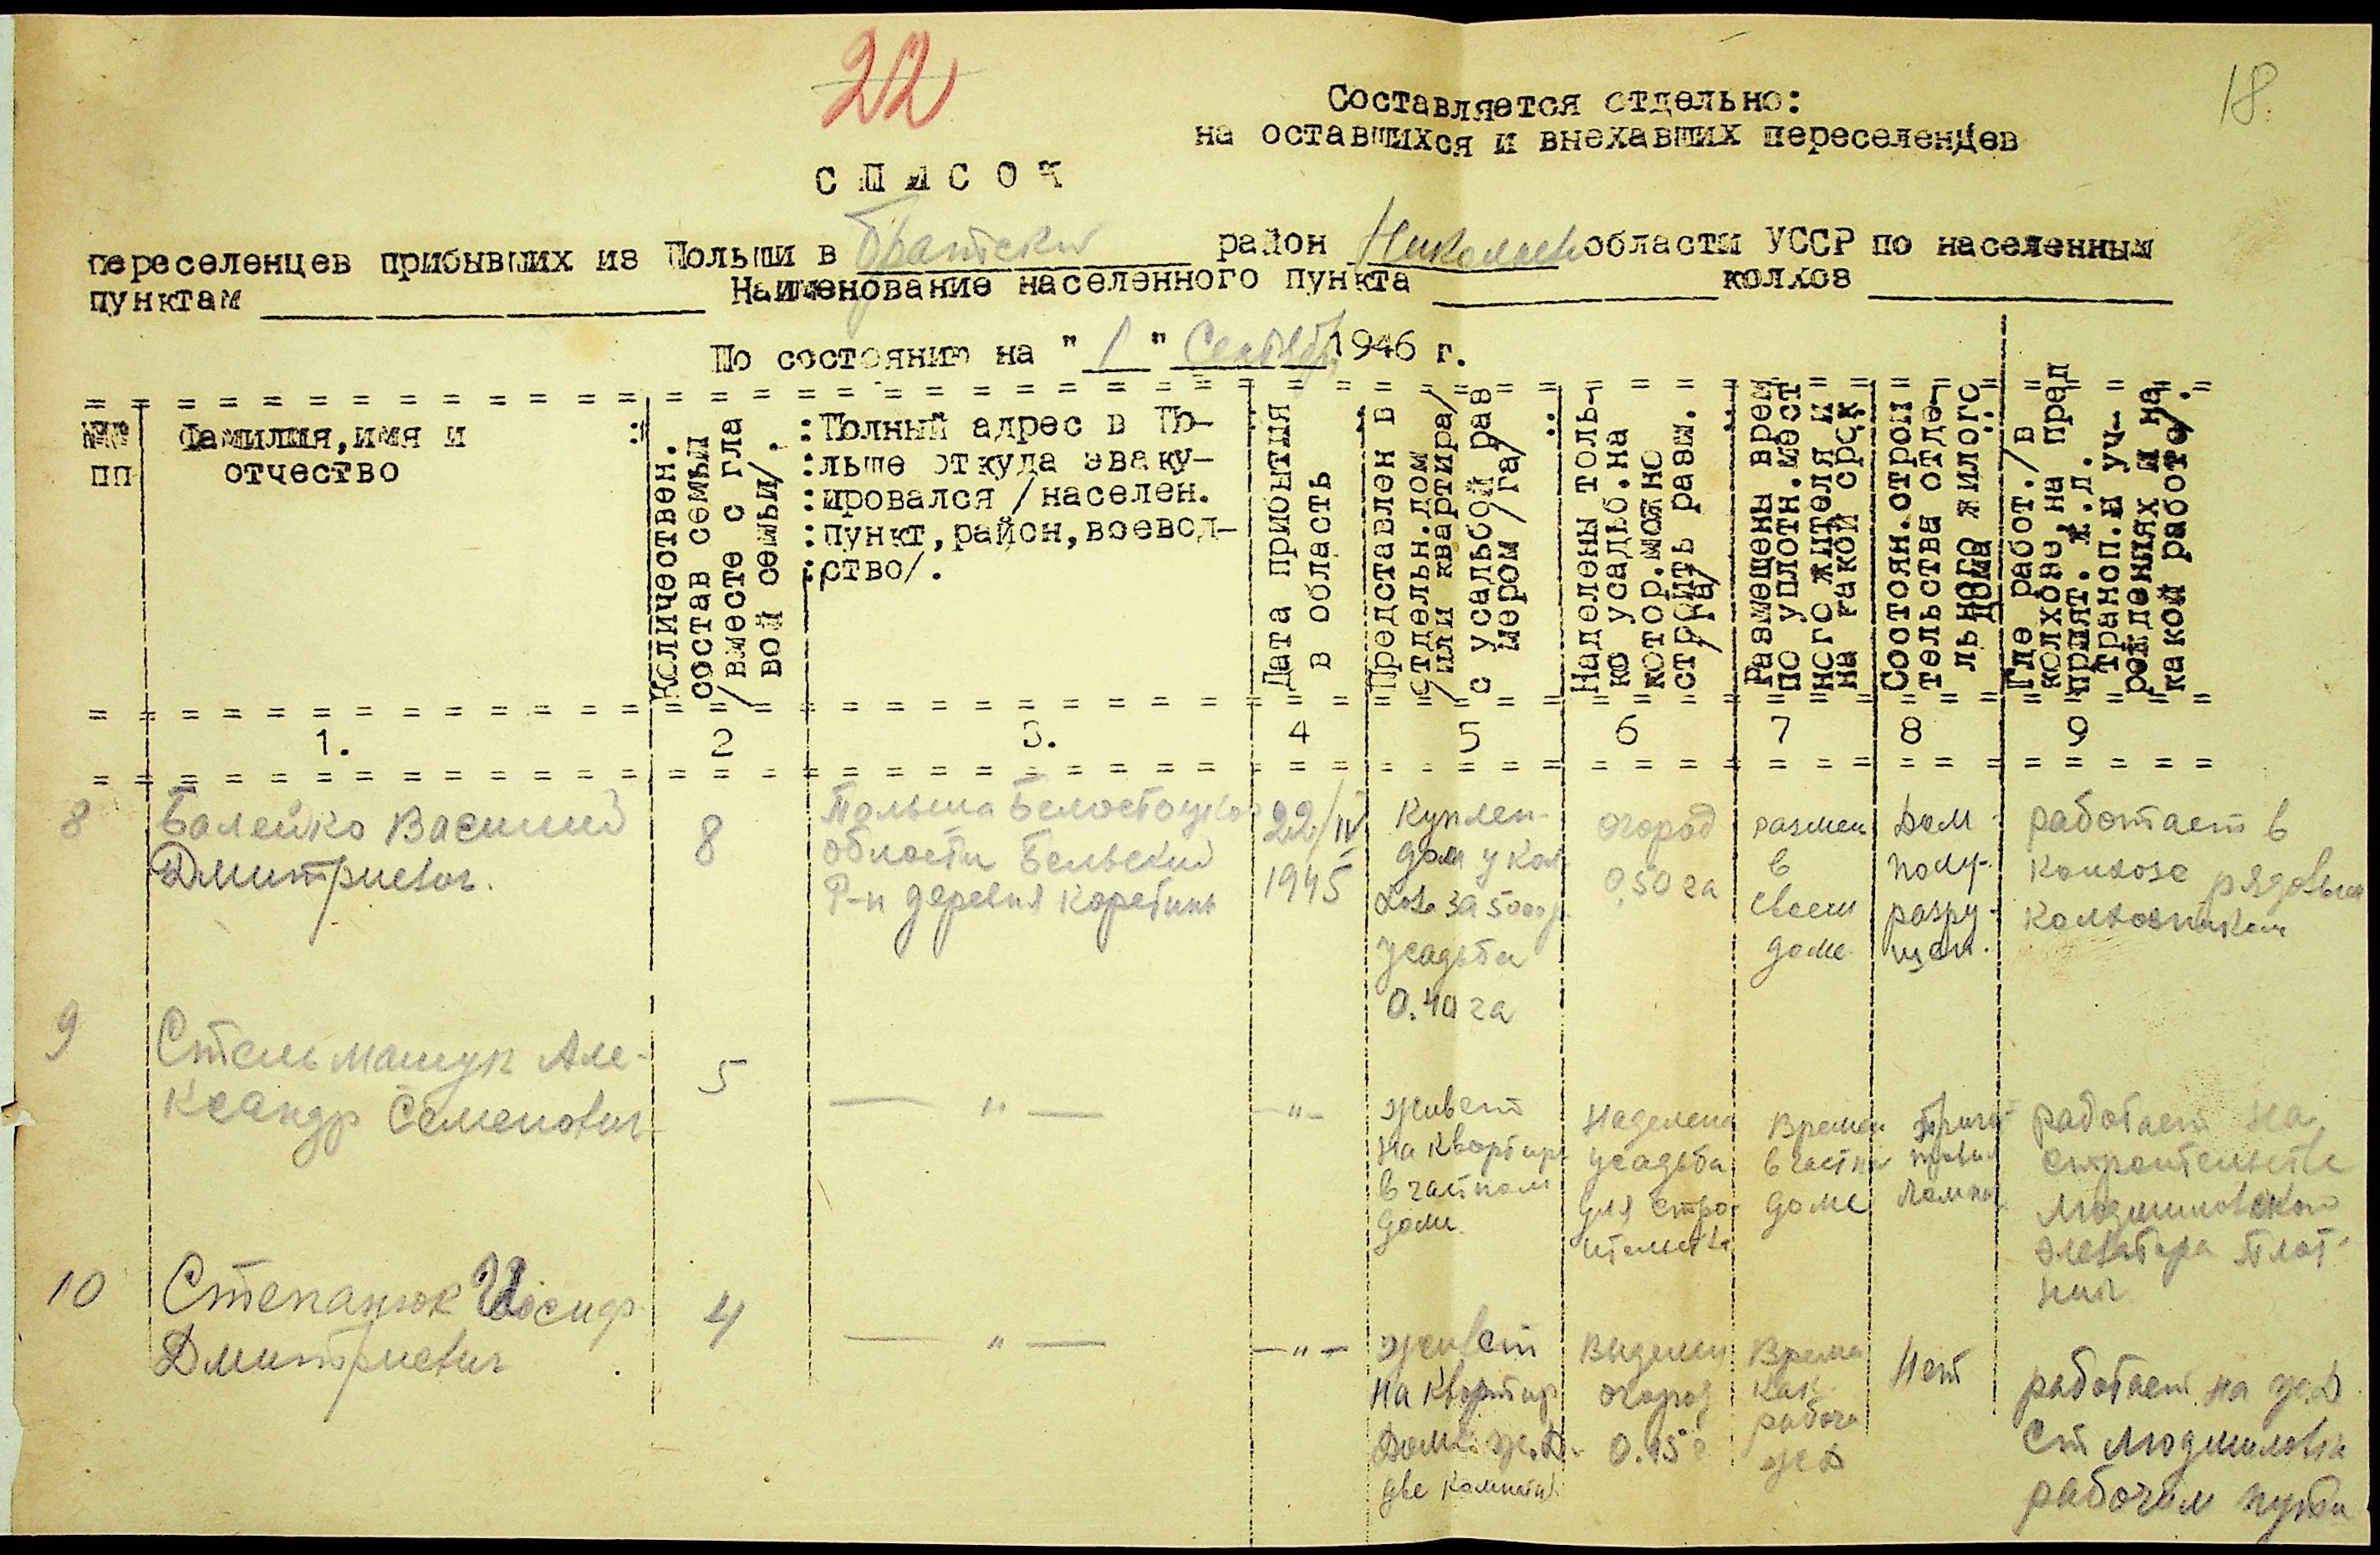 22
18.
Составляется отдельно:
на оставшихся и внехавших переселенцев
С П И С О К
переселенцев прибывших из Польши в Братский район Николаев области УССР по населенным
пунктам ____ Наименование населенного пункта ____ колхоз ____
По состоянию на "1" Сентябр 1946 г.
№№
пп
Фамилия, имя и
отчество
Количествен.
состав семьи
/вместе с гла
вой семьи/.
Полный адрес в По-
льше откуда эваку-
ировался /населен.
пункт, район, воевод-
ство/.
Дата прибытия
в область
Представлен в
отдельн.дом
/или квартира/
с усадьбой раз
мером /га/
Наделены толь-
ко усадьб.на
котор.можно
строить разм.
/га/
Размещены врем
по уплотн.мест
ного жителя и
на какой срок
Состоян.строи
тельства отде-
льного жилого
дома
Где работ./в
колхозе, на пред
прият. ж.д.
трансп.и уч-
реждениях и на
какой работе/.
1. 2 3. 4 5 6 7 8 9
8
Балейко Василий
Дмитриевич.
8
Польша Белостоцкой
области Бельский
Р-н деревня
22/IV
1945
Куплен
дом у кол
за 5000 р.
усадьба
0.40 га
огород
0,50 га
размещ
в
своем
доме
Дом
полу-
разру-
щен.
работает в
колхозе рядовым
колхозником
9
Стельмашук Але-
ксандр Семенович
5
— " —
— " —
живет
на квартире
в частном
доме.
Наделена
усадьба
для стро
ительства
Времен
в частном
доме
работает на
строительстве
Людмиловского
элеватора Плот-
ник
10
Степанюк Иосиф
Дмитриевич
4
— " —
— " —
живет
на квартир
Доме ж.д.
две комнаты
Выделен
огород
0.15
Времен
как
рабоч
ж д
Нет
работает на ж.д
ст Людмиловка
рабочим пути